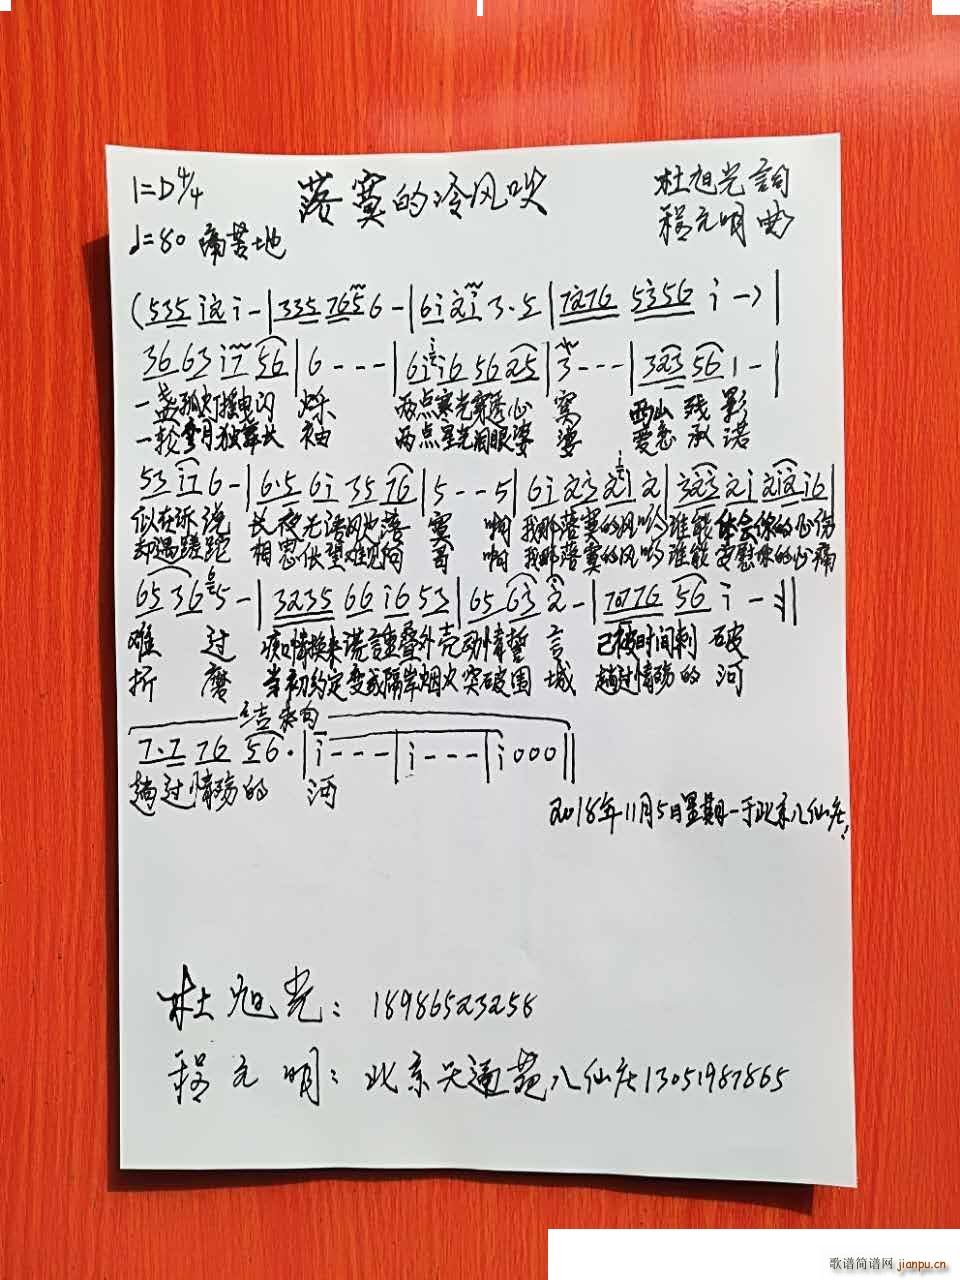 1=D 4/4 落寞的冷风吹 杜旭光詞
♩=80 痛苦地 程元明曲
(535 i2i i - | 335 765 6 - | 6i 2i 3·5 | 7276 5356 i - ) |
36 63 i7 56 | 6 - - - | 6i i6 56 25 | 3 - - - | 323 56 1 - |
一盏孤灯摇曳闪 烁 两点寒光穿透心 窝 西山残影
一轮 月独舞长 袖 两点星光泪眼婆 娑 爱意承诺
53 i7 6 - | 6·5 6i 35 76 | 5 - - 5 | 6i 23 2i 2 | 323 2i 2i2 i6 |
似在诉说 长夜无语风吹落 寞 啊 我那落寞的风哟 谁能体会你的心伤
却遇蹉跎 相思伫望难见 啊 我那落寞的风哟 谁能安慰你的心痛
65 36 5 - | 3235 66 i6 53 | 65 63 2 - | 7276 56 i - :||
难 过 痴情换来谎言重叠外壳 动情誓 言 已被时间刺 破
折 磨 当初约定变成隔岸烟火 突破围 城 趟过情殇的 河
结束句
7·7 76 56· | i - - - | i - - - | i 0 0 0 ||
趟过情殇的 河
2018年11月5日星期一于北京八仙庄
杜旭光：18986523258
程元明：北京天通苑八仙庄13051987865
歌谱简谱网 jianpu.cn